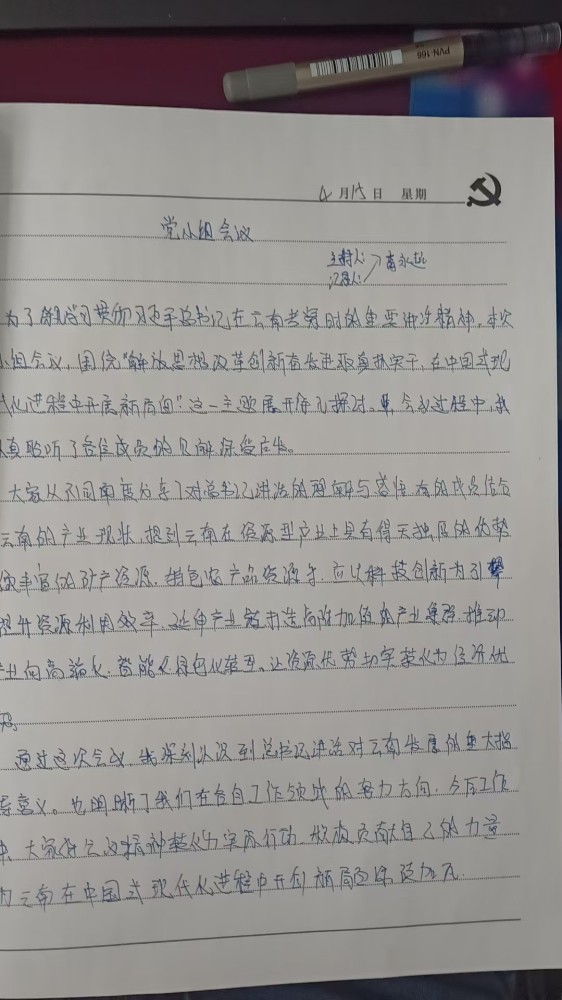 PVN-166
4月15日 星期
党小组会议
主持人:
记录人: 永超
为了深刻学习贯彻习近平总书记在云南考察时的重要讲话精神,本次
小组会议,围绕"解放思想改革创新奋发进取真抓实干,在中国式现
代化进程中开展新局面"这一主题展开深入探讨。会议过程中,我
真聆听了各位成员的见解深受启发。
大家从不同角度分享了对总书记讲话的理解与感悟 有的成员结合
云南的产业现状,提到云南在资源型产业上具有得天独厚的优势
丰富的矿产资源,特色农产品资源等,应以科技创新为引擎
提升资源利用效率,延伸产业链打造高附加值的产业集群,推动
产业向高端化,智能化绿色化转型。让资源优势切实转化为经济优
势。
通过这次会议,我深刻认识到总书记讲话对云南发展的重大指
导意义。也明晰了我们在各自工作领域的努力方向,今后工作
中 大家将会议精神转化为实际行动,积极贡献自己的力量
为云南在中国式现代化进程中开创新局面添砖加瓦.